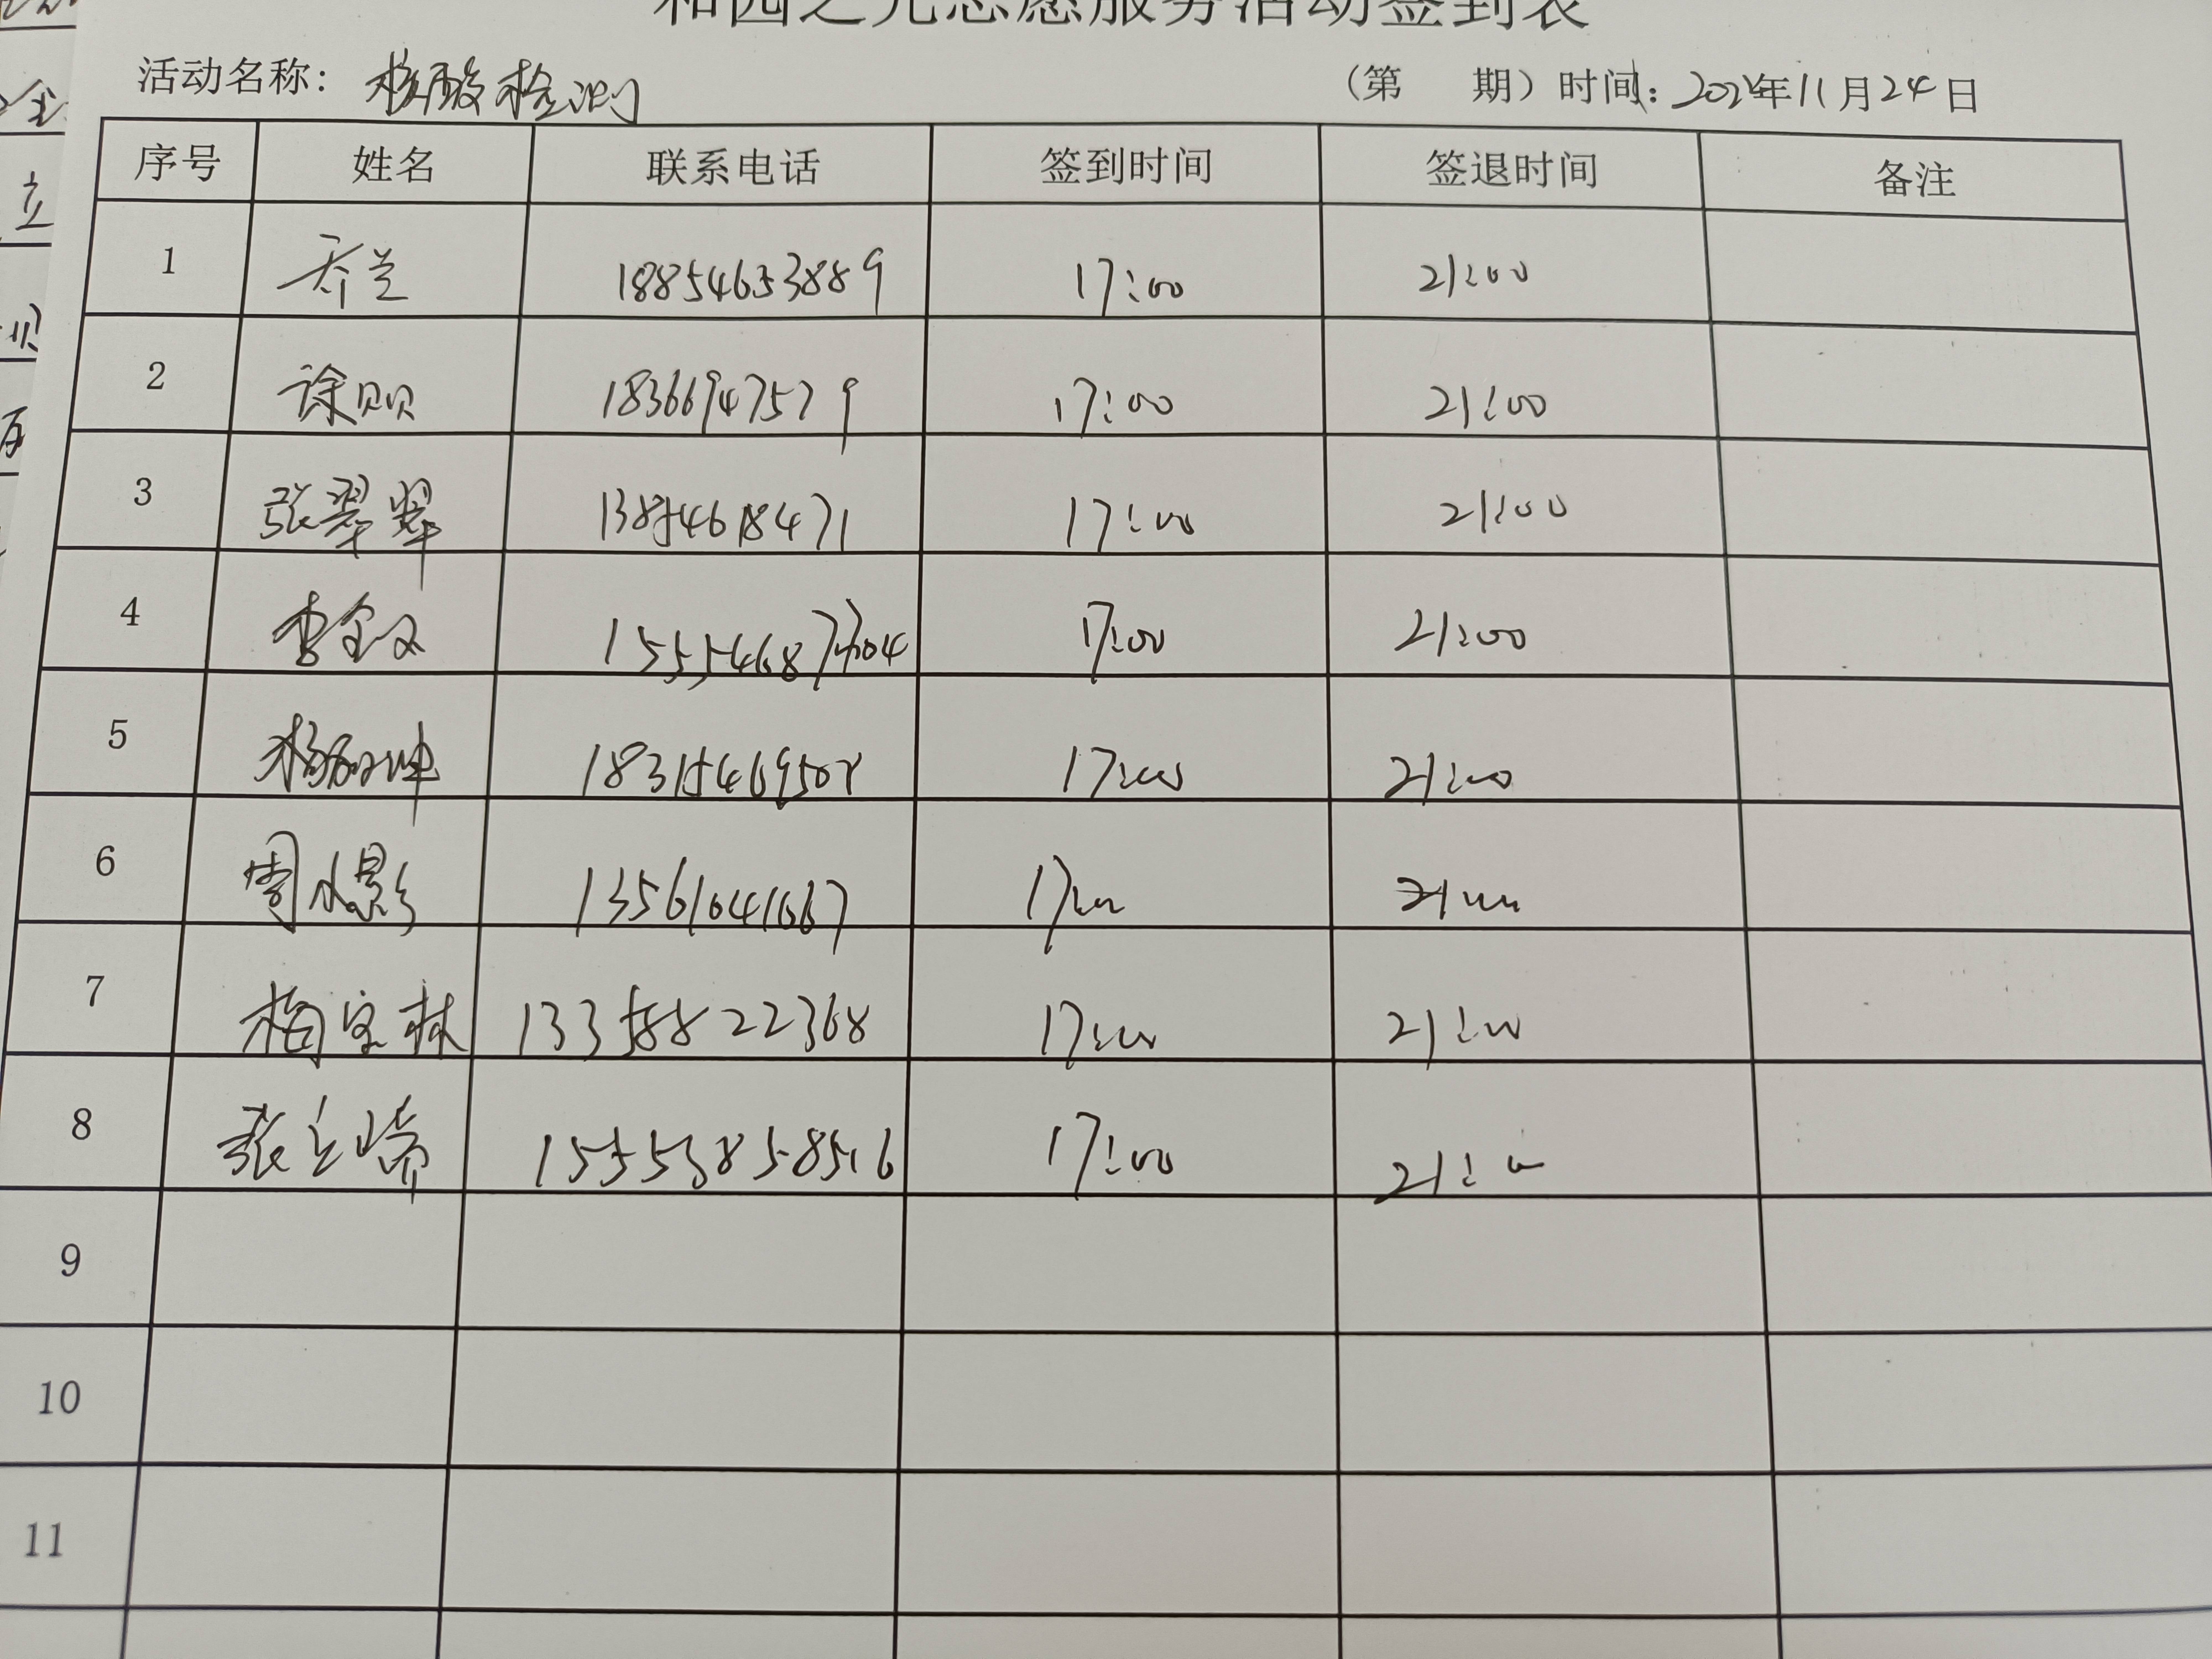 和园之光志愿服务活动签到表
活动名称：核酸检测 （第 期）时间：2022年11月24日
序号 姓名 联系电话 签到时间 签退时间 备注
1 乔兰 18854653889 17:00 21:00
2 徐贝贝 18366947579 17:00 21:00
3 张翠翠 13854618471 17:00 21:00
4 李金文 17:00 21:00
5 17:00 21:00
6 周水影 13561041667 17:00 21:00
7 梅宝林 13358822368 17:00 21:00
8 15553858516 17:00 21:00
9
10
11